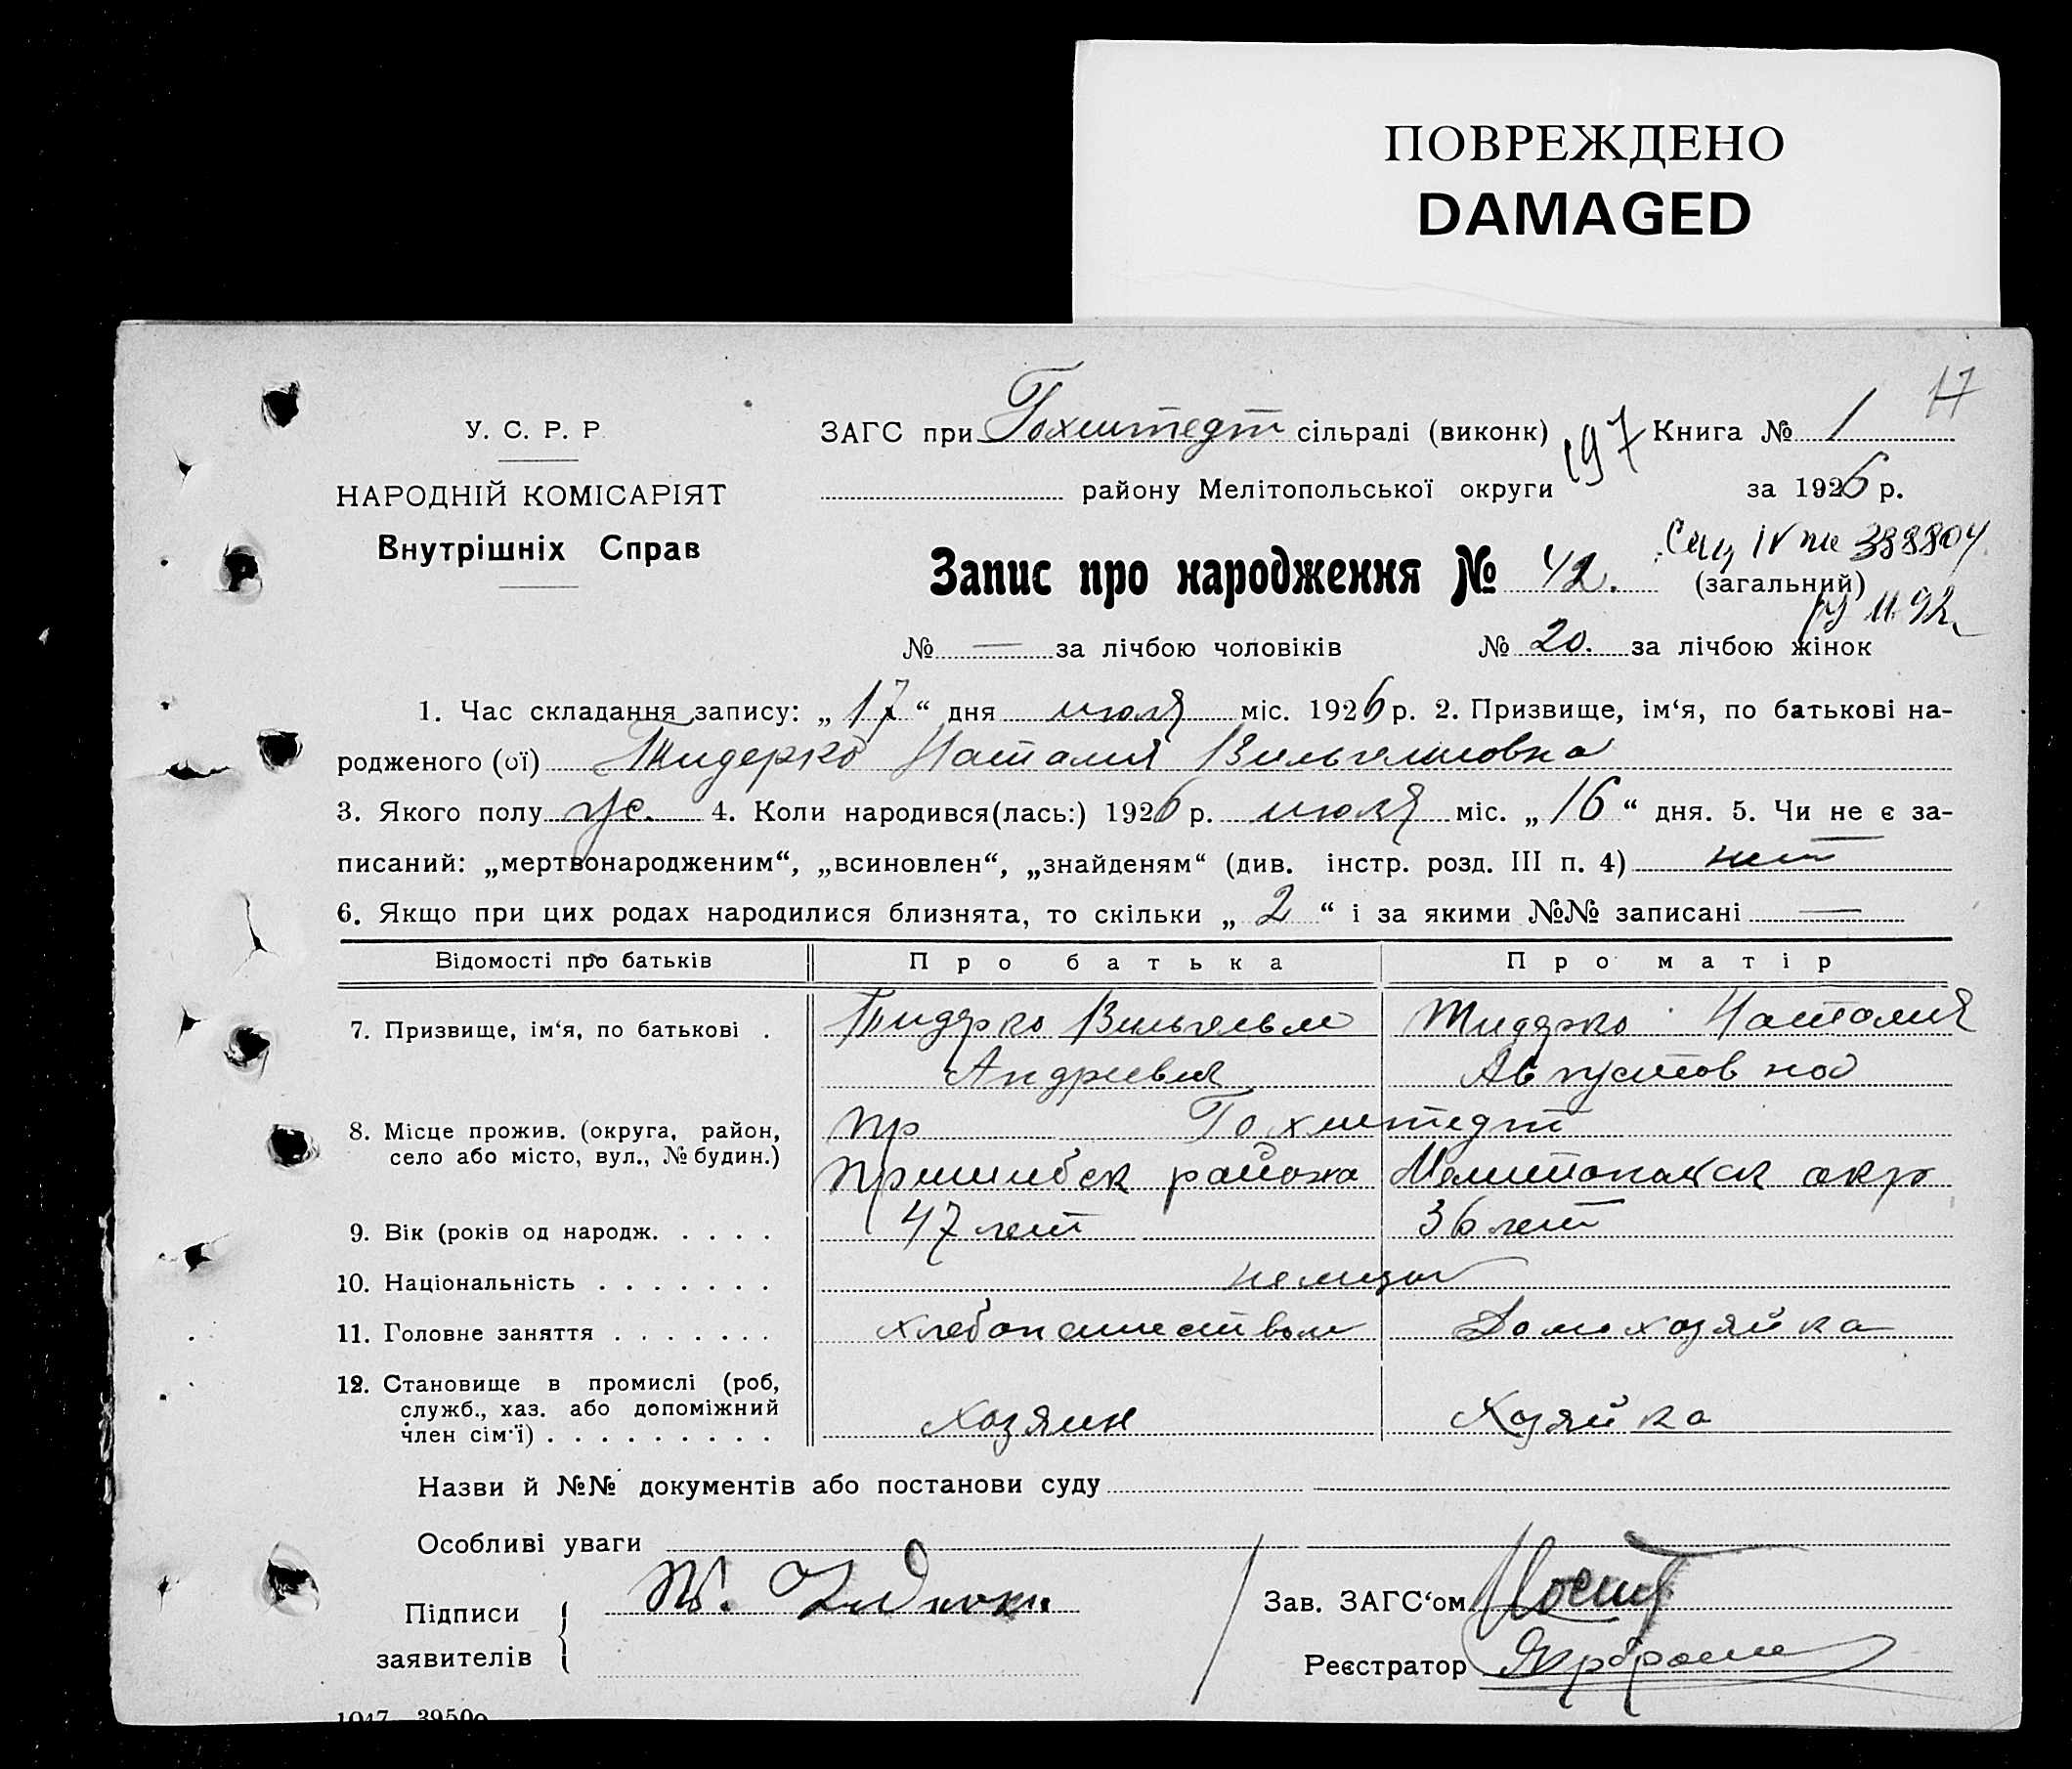 ПОВРЕЖДЕНО
DAMAGED
17
У. С. Р. Р.
ЗАГС при Гохштедт сільраді (виконк) 197 Книга № 1
НАРОДНІЙ КОМІСАРІЯТ
району Мелітопольської округи за 1926 р.
Внутрішніх Справ
Запис про народження № 42. (загальний)
388804
11.92
№ — за лічбою чоловіків № 20. за лічбою жінок
1. Час складання запису: „ 17 “ дня июля міс. 1926 р. 2. Призвище, ім‘я, по батькові на-
родженого (ої) Тидерко Наталия Вильгелмовна
3. Якого полу жс. 4. Коли народився(лась:) 1926 р. июля міс. „ 16 “ дня. 5. Чи не є за-
писаний: „мертвонародженим“, „всиновлен“, „знайденям“ (див. інстр. розд. III п. 4) нет
6. Якщо при цих родах народилися близнята, то скільки „ 2 “ і за якими №№ записані —
Відомості про батьків Про батька Про матір
7. Призвище, ім‘я, по батькові . Тидерко Вильгельм Тидерко Наталия
Андреевич Августовна
8. Місце прожив. (округа, район, пр Гохштедт
село або місто, вул., № будин.) Пришибск района Мелитопольск окр
9. Вік (років од народж. . . . . 47 лет 36 лет
10. Національність . . . . . . . немцы
11. Головне заняття . . . . . . . хлебопашеством Домохозяйка
12. Становище в промислі (роб,
служб., хаз. або допоміжний Хозяин Хозяйка
член сім‘ї) . . . . . . . . .
Назви й №№ документів або постанови суду
Особливі уваги
Підписи W. Зав. ЗАГС‘ом
заявителів Реєстратор
1047 3950